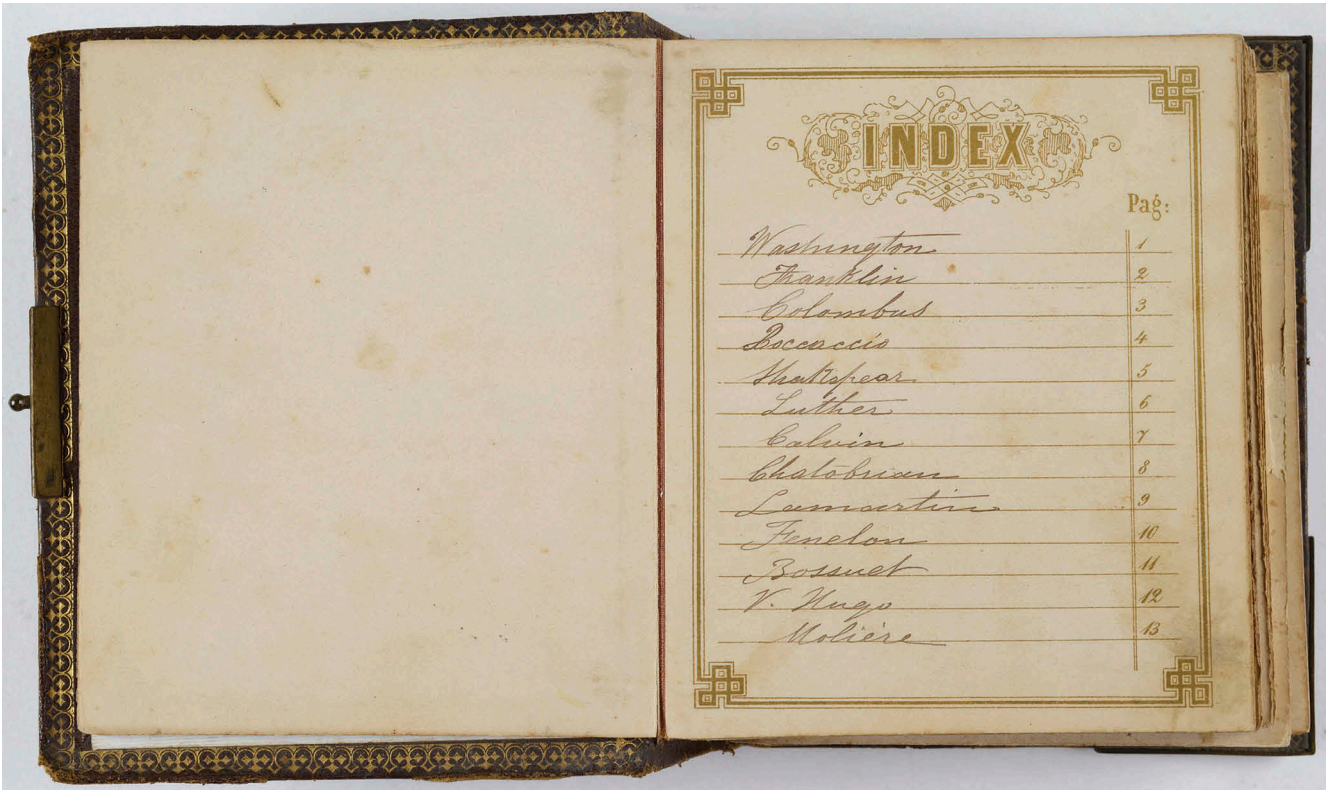 INDEX
Pag:
Washington 1
Franklin 2
Colombus 3
Boccaccio 4
Shakspear 5
Luther 6
Calvin 7
Chatobrian 8
Lamartin 9
Fenelon 10
Bossuet 11
V. Hugo 12
Molière 13